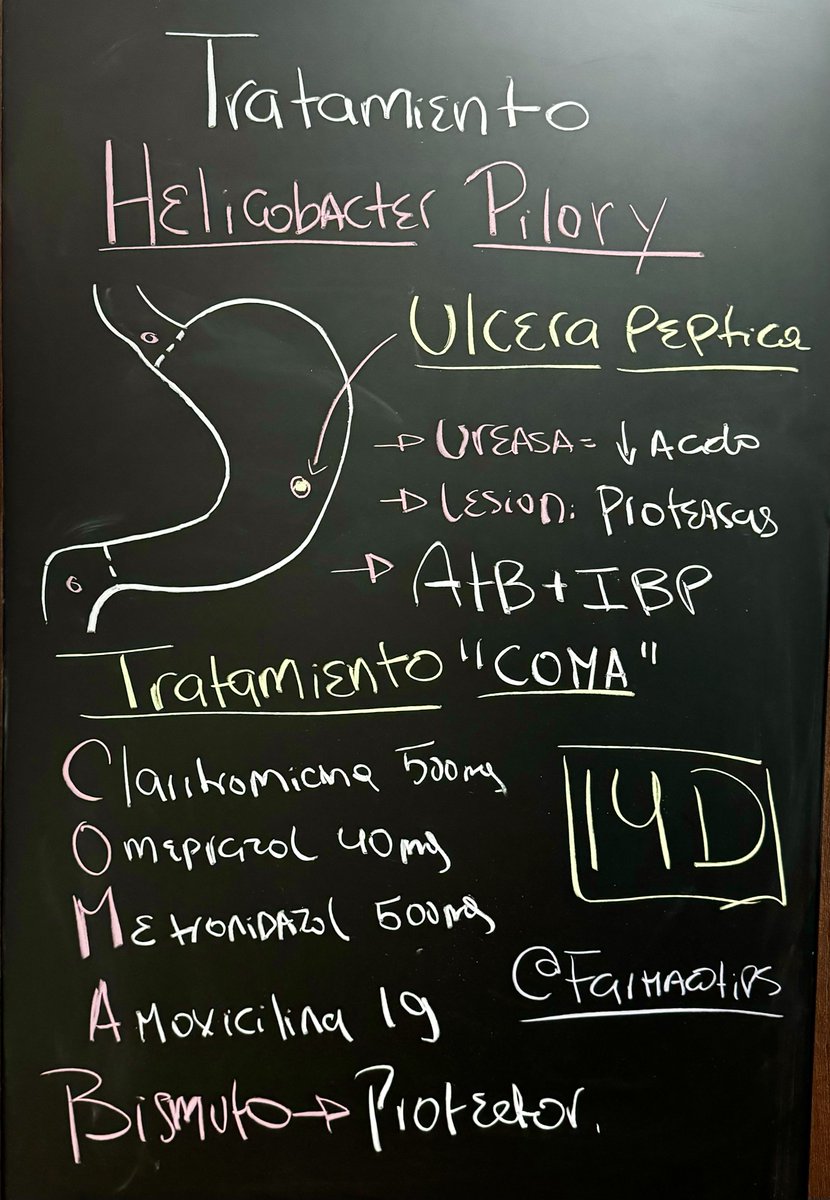 Tratamiento
Helicobacter Pilory
Ulcera Peptica
→ Ureasa = ↓ Acido
→ Lesion: Proteasas
→ AtB + IBP
Tratamiento "COMA"
Claritromicina 500mg
Omeprazol 40mg
Metronidazol 500mg
Amoxicilina 1g
14D
@Farmacotips
Bismuto → Protector.